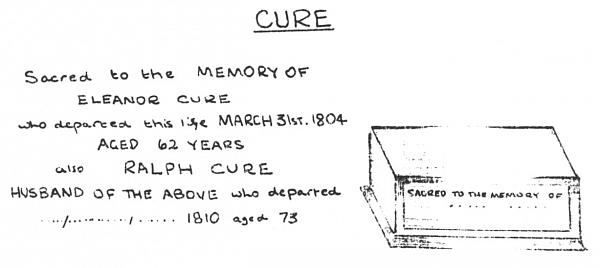 CURE
Sacred to the MEMORY OF
ELEANOR CURE
who departed this life MARCH 31ST. 1804
AGED 62 YEARS
also RALPH CURE
HUSBAND OF THE ABOVE who departed
...../............/...... 1810 aged 73
SACRED TO THE MEMORY OF
..... ......